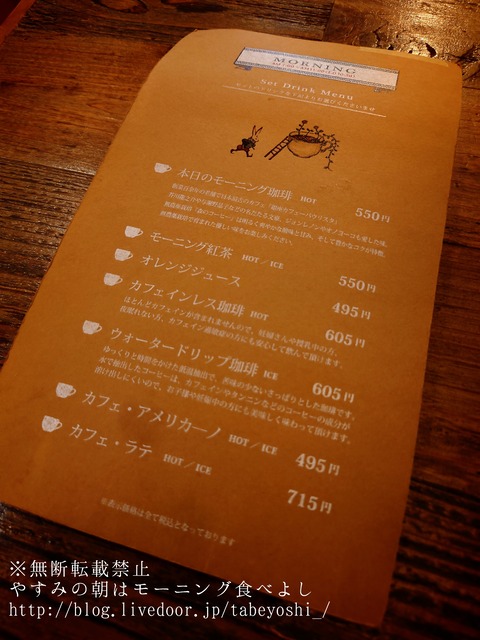 MORNING
Set Drink Menu
本日のモーニング珈琲 HOT 550円
モーニング紅茶 HOT / ICE 550円
オレンジジュース 495円
カフェインレス珈琲 HOT 605円
ほとんどカフェインが含まれませんので、妊婦さんや授乳中の方、
夜眠れない方、カフェイン過敏症の方にも安心して飲んで頂けます。
ウォータードリップ珈琲 ICE 605円
ゆっくりと時間をかけた低温抽出で、苦味の少ないさっぱりとした珈琲です。
水で抽出したコーヒーは、カフェインやタンニンなどのコーヒーの成分が
溶け出しにくいので、お子様や妊娠中の方にも美味しく味わって頂けます。
カフェ・アメリカーノ HOT / ICE 495円
カフェ・ラテ HOT / ICE 715円
※表示価格は全て税込となっております
※無断転載禁止
やすみの朝はモーニング食べよし
http://blog.livedoor.jp/tabeyoshi_/